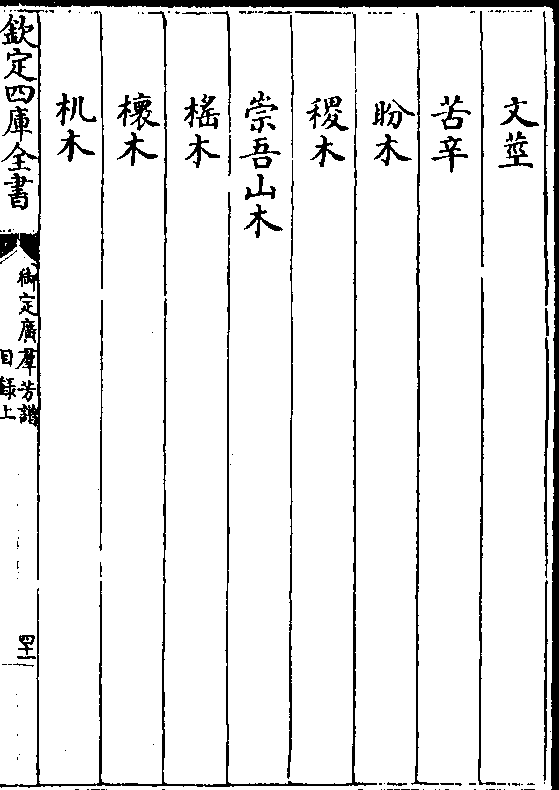 文莖
苦辛
盼木
稷木
崇吾山木
榣木
櫰木
机木
欽定四庫全書
御定廣羣芳譜
目録上